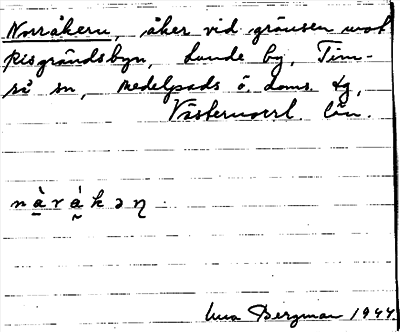 Norråkern, åker vid gränsen mot
Risgrändsbyn, Lunde by, Tim-
rå sn, Medelpads ö. doms. tg,
Västernorrl. län.
n à̱ r á̰ k ə ŋ
Bergman 1944.